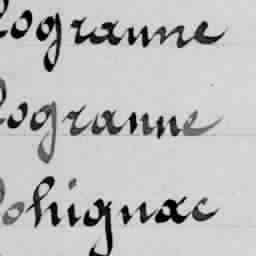 logranne
logranne
Johignac